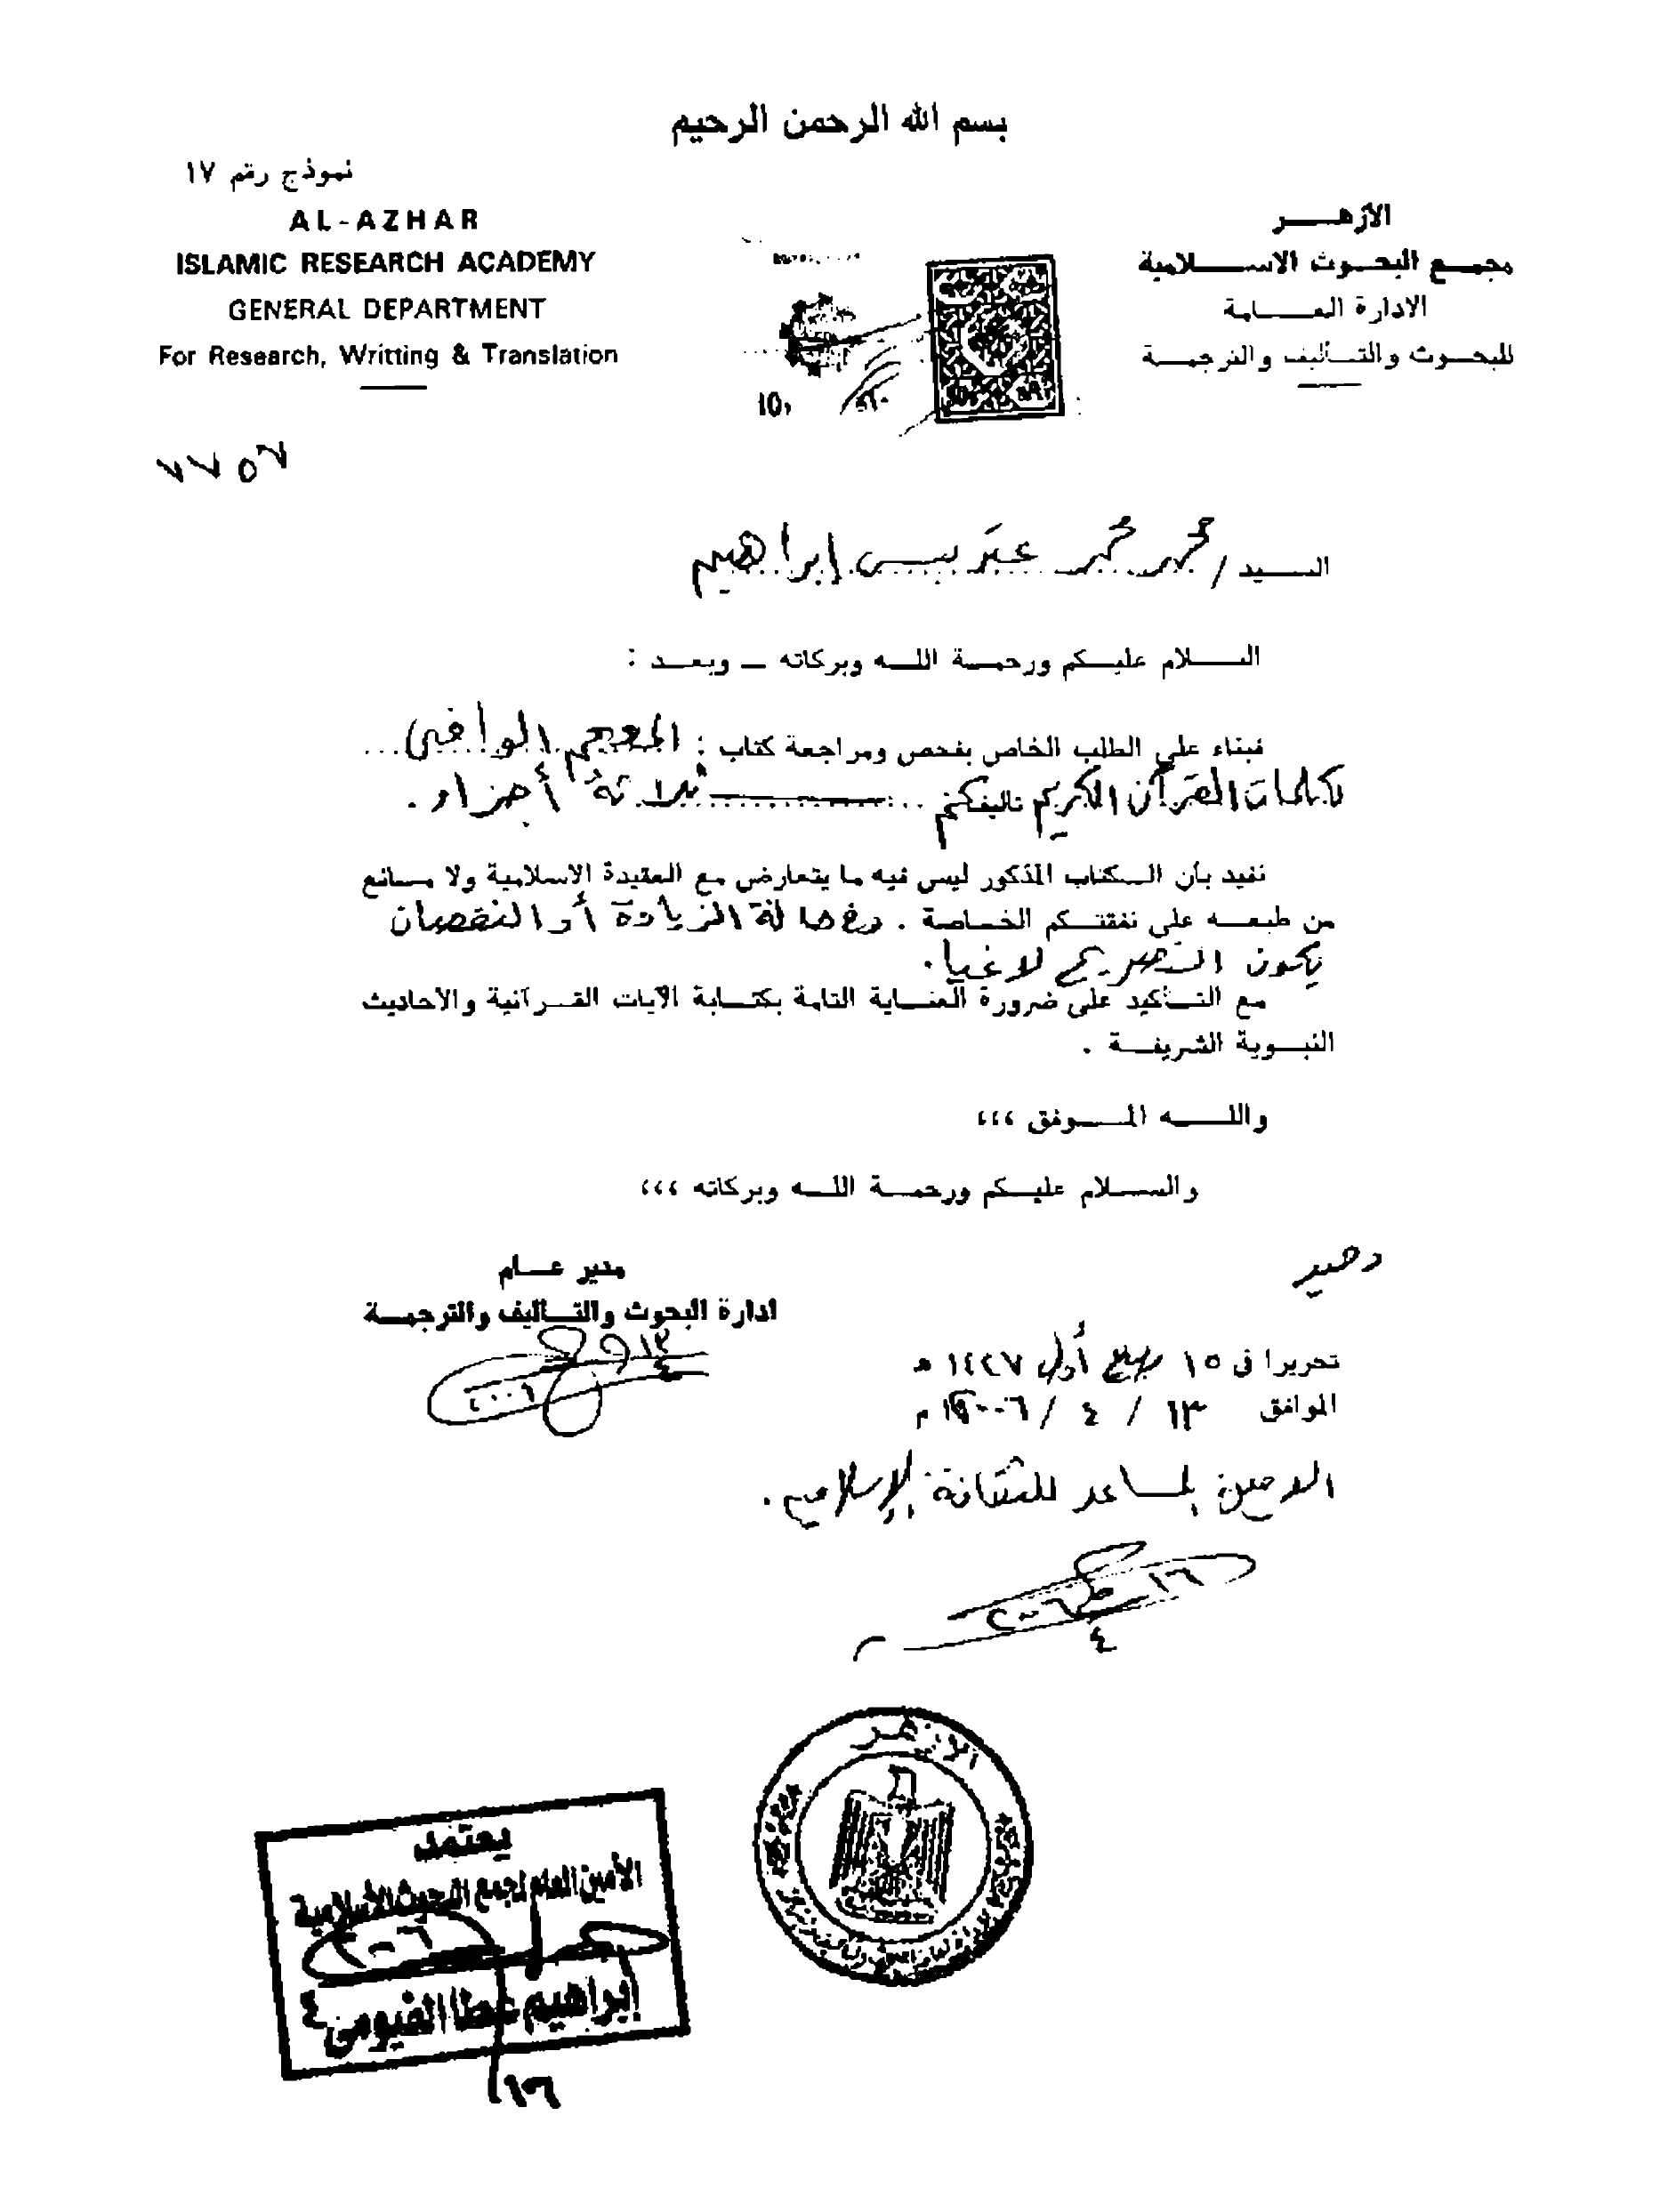 بسم الله الرحمن الرحيم
نموذج رقم ١٧
الأزهـــر
مجمـع البحـوث الاسـلامية
الادارة العـامة
للبحـوث والتـأليف والترجمـة
AL-AZHAR
ISLAMIC RESEARCH ACADEMY
GENERAL DEPARTMENT
For Research, Writting & Translation
السـيد / محمد محمد عتريس إبراهيم
السـلام عليـكم ورحمـة اللـه وبركاته ــ وبعـد :
فبناء على الطلب الخاص بفحص ومراجعة كتاب : المعجم الوافى
لكلمات القرآن الكريم تاليفكم ثلاثة أجزاء .
نفيد بأن الـكتاب المذكور ليس فيه ما يتعارض مع العقيدة الاسلامية ولا مـانع
من طبعـه على نفقتـكم الخـاصة . وفى حالة الزيادة أو النقصان
يكون التصريح لاغيا .
مع التـأكيد على ضرورة العنـاية التامة بكتـابة الآيات القـرآنية والأحاديث
النبـوية الشريفـة .
واللـــه المـوفق ،،،
والسـلام عليـكم ورحمـة اللـه وبركاته ،،،
مدير عـام
ادارة البحوث والتـأليف والترجمـة
١٣
٤
٢٠٠٦
تحريرا فى ١٥ ربيع أول ١٤٢٧ هـ
الموافق ١٣ / ٤ / ٢٠٠٦ م
الأمين المساعد للثقافة الإسلامية .
١٦
٤
٢٠٠٦
الأزهر
يعتمد
الأمين العام لمجمع البحوث الإسلامية
إبراهيم عطا الفيومى